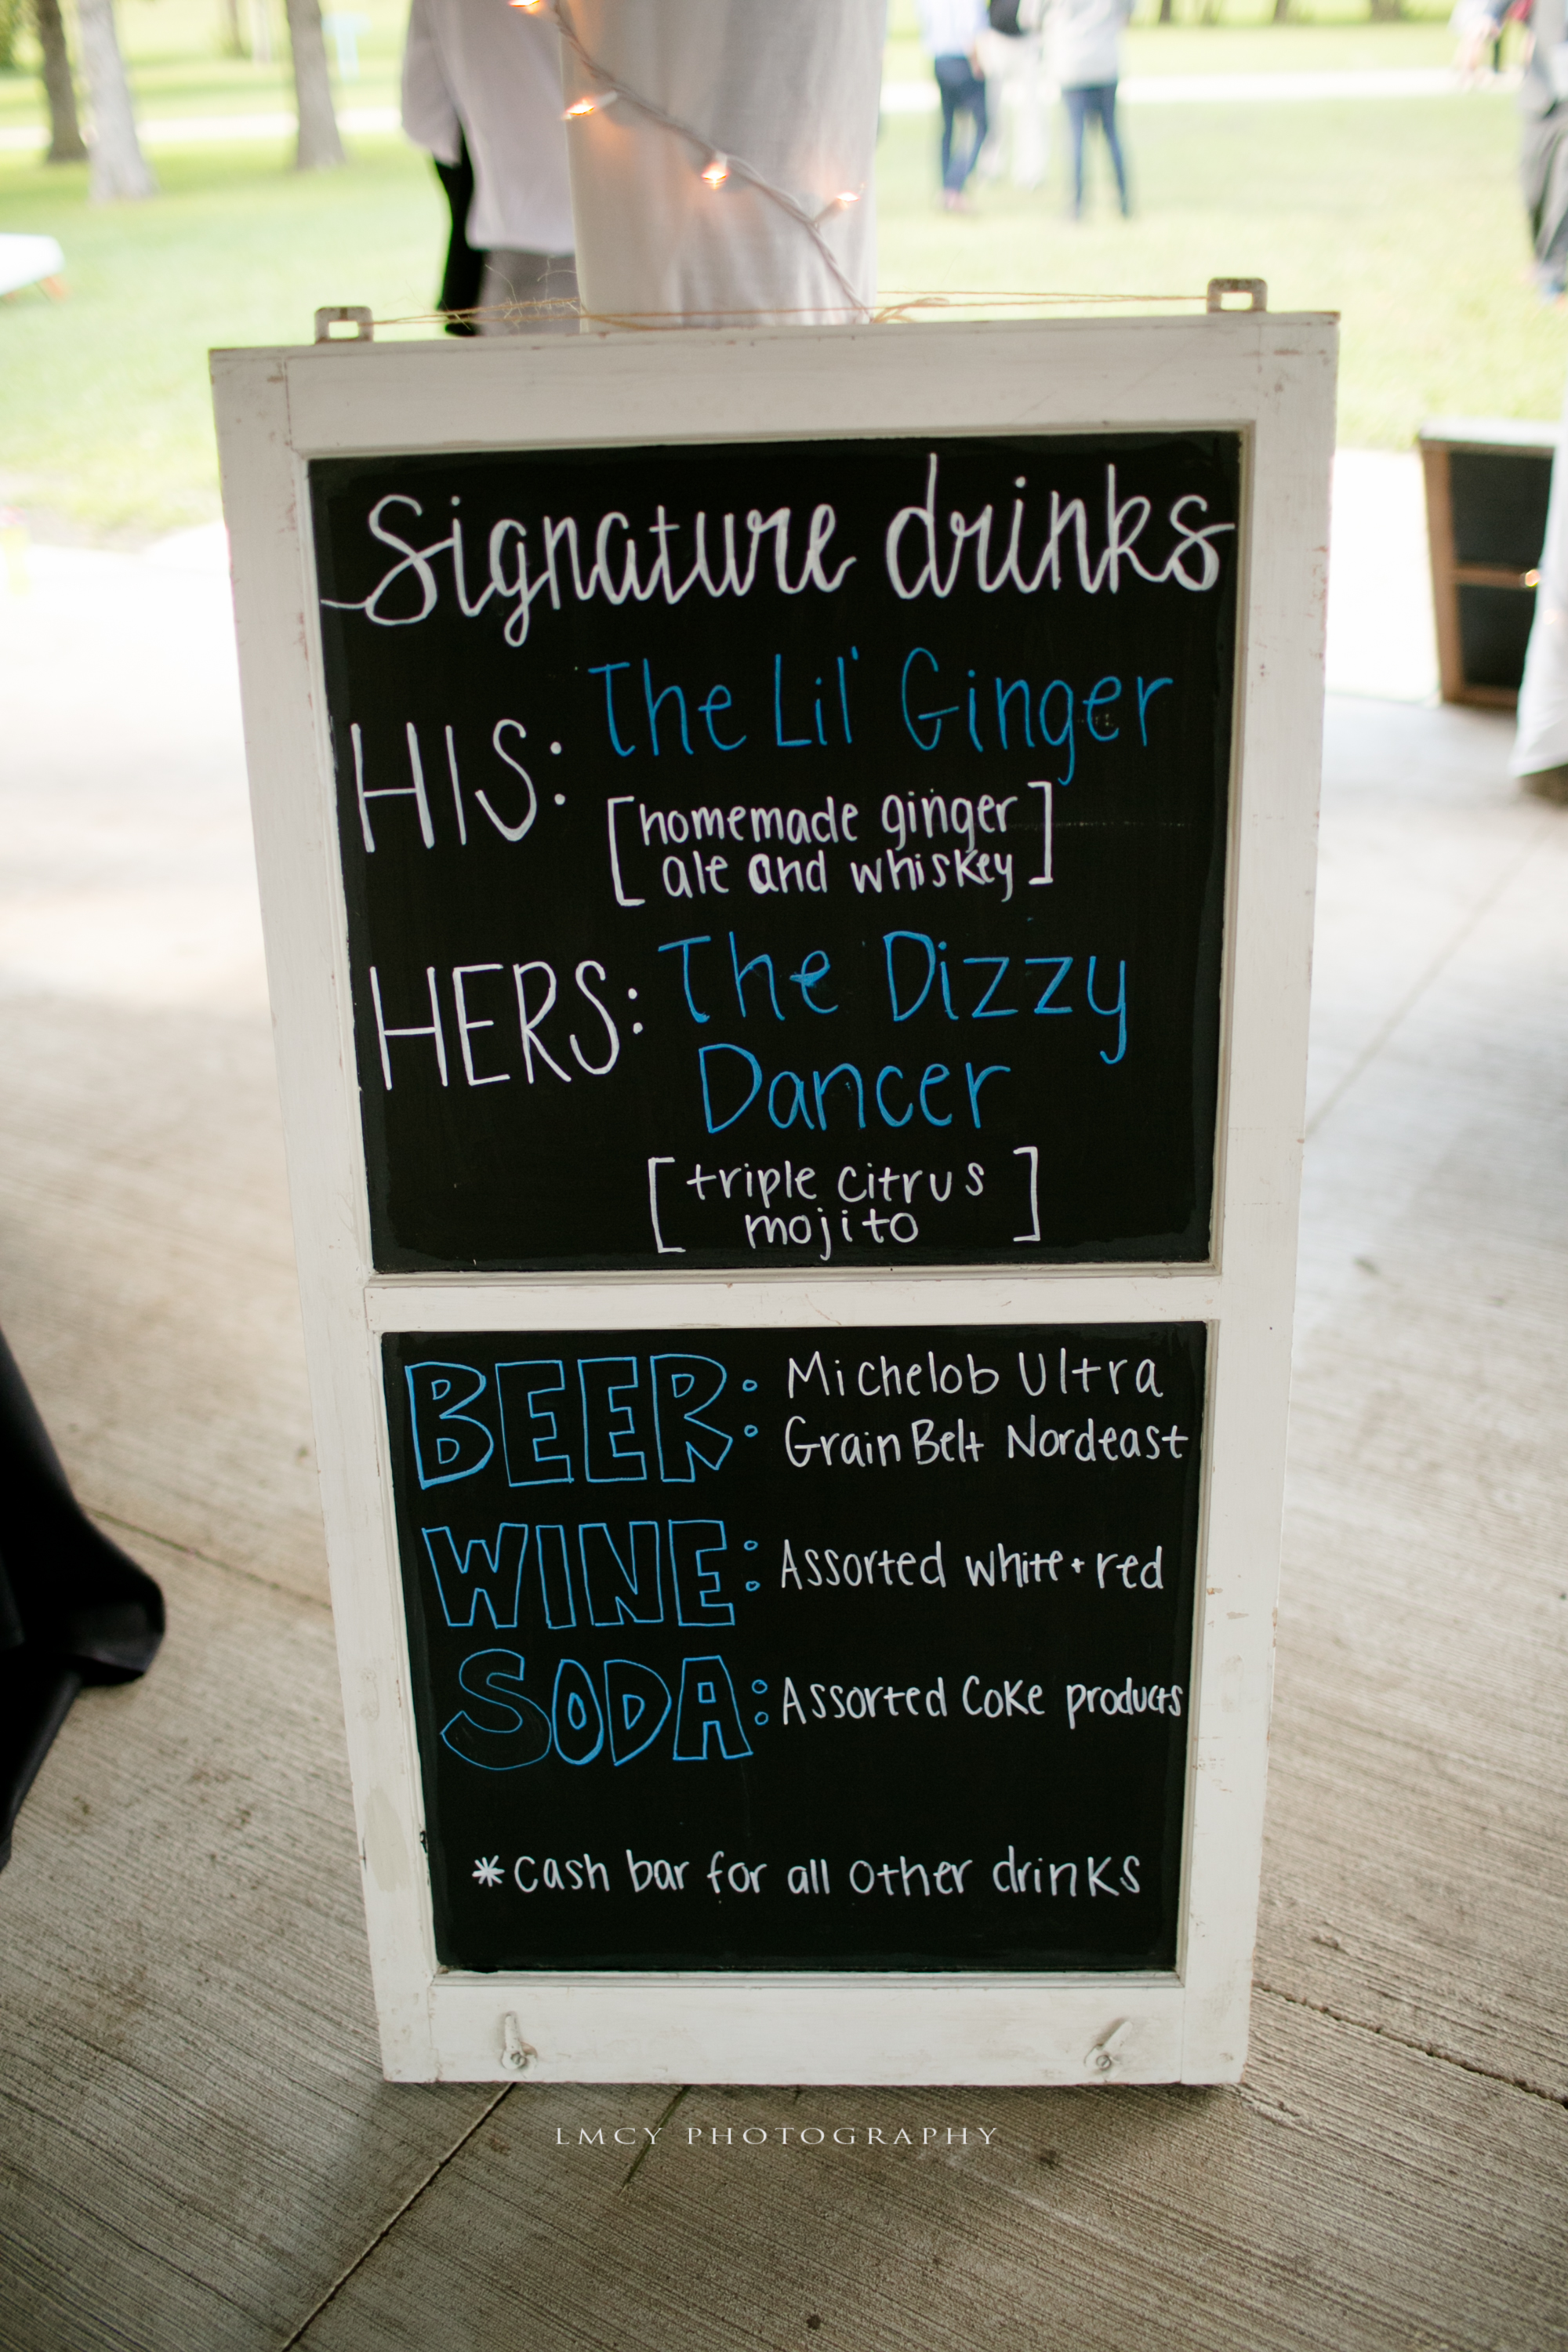 Signature drinks
HIS: The Lil' Ginger
[homemade ginger
ale and whiskey]
HERS: The Dizzy
Dancer
[triple citrus
mojito]
BEER: Michelob Ultra
Grain Belt Nordeast
WINE: Assorted white + red
SODA: Assorted Coke products
*cash bar for all other drinks
LMCY PHOTOGRAPHY